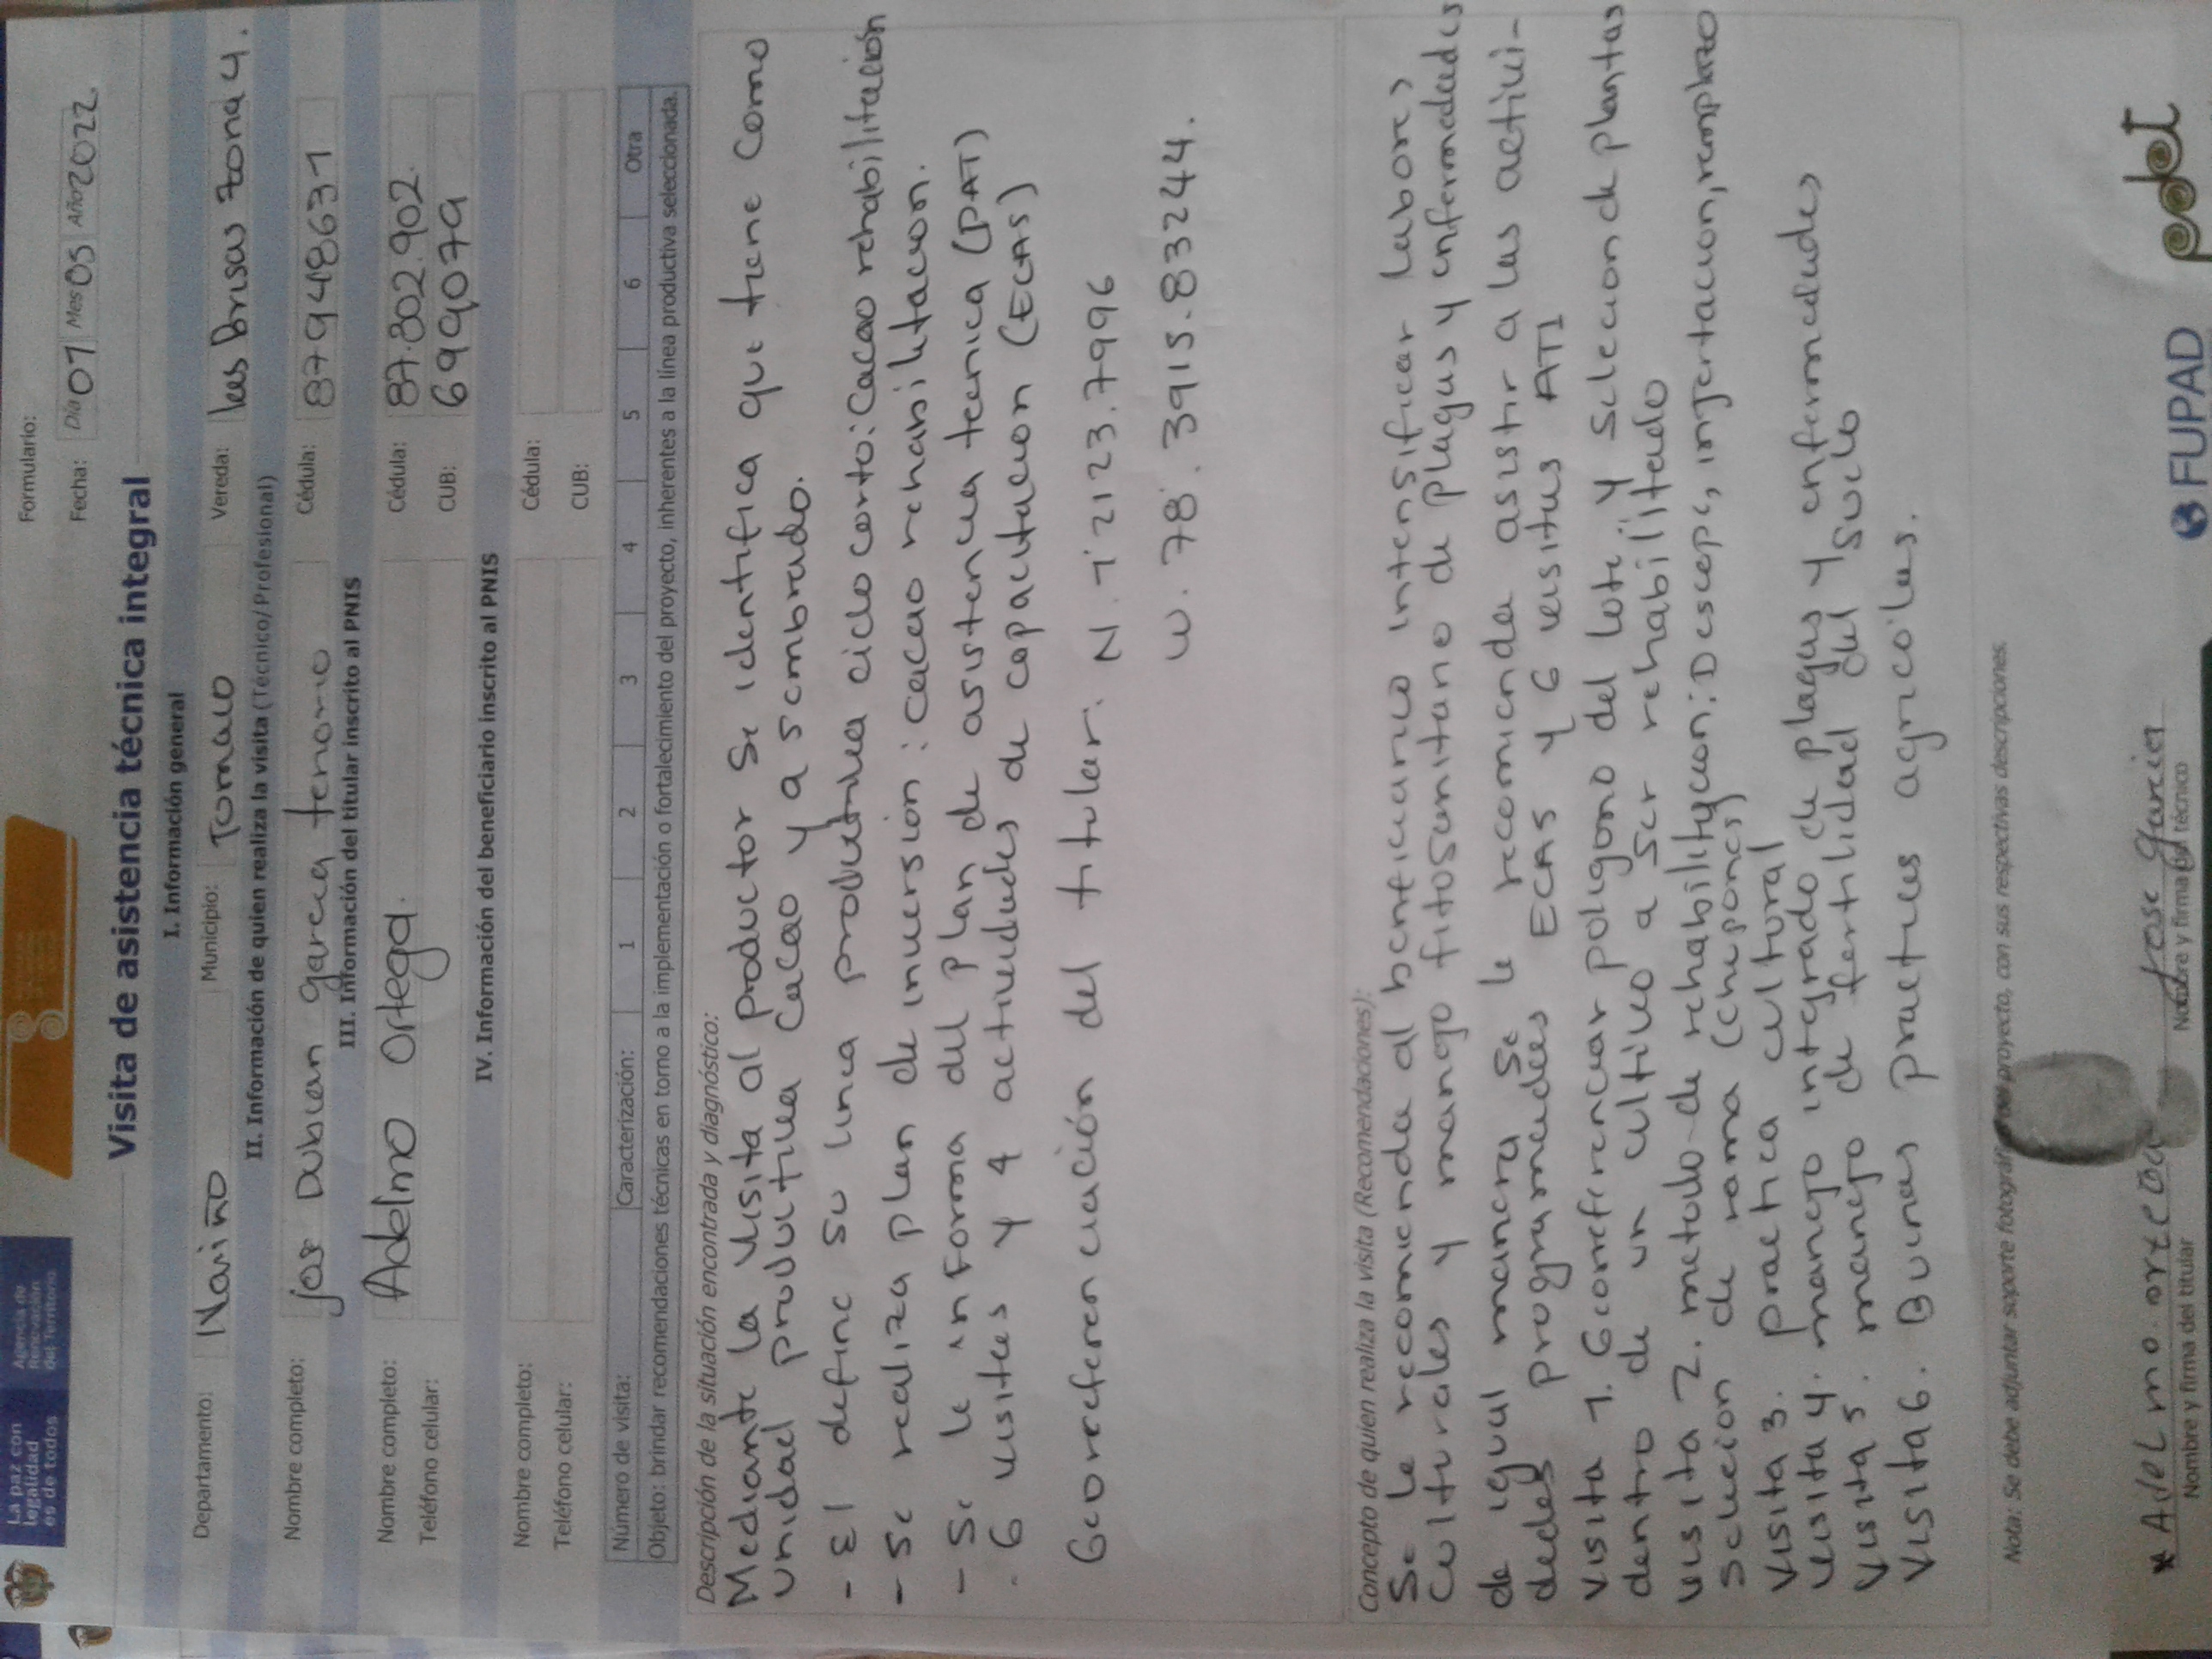 La paz con
legalidad
es de todos
Agencia de
Renovación
del Territorio
Formulario:
Fecha: Día 07 Mes 05 Año 2022.
Visita de asistencia técnica integral
I. Información general
Departamento: Nariño Municipio: Tomaco Vereda: las brisas zona 4.
II. Información de quien realiza la visita (Técnico/Profesional)
Nombre completo: Jose Dubian garcia tenorio Cédula: 87948631
III. Información del titular inscrito al PNIS
Nombre completo: Adelmo Ortega. Cédula: 87.802.902.
Teléfono celular: CUB: 699079
IV. Información del beneficiario inscrito al PNIS
Nombre completo: Cédula:
Teléfono celular: CUB:
Número de visita: Caracterización: 1 2 3 4 5 6 Otra
Objeto: brindar recomendaciones técnicas en torno a la implementación o fortalecimiento del proyecto, inherentes a la línea productiva seleccionada.
Descripción de la situación encontrada y diagnóstico:
Mediante la visita al productor se identifica que tiene como
unidad productiva cacao y asombrado.
- El define su linea productiva ciclo corto: cacao rehabilitación
- se realiza plan de inversion: cacao rehabilitacion.
- Se le informa del plan de asistencia tecnica (PAT)
. 6 visitas y 4 actividades de capacitacion (ECAS)
Georeferenciación del titular: N. 1°2123.7996
W. 78°.3915.83244.
Concepto de quien realiza la visita (Recomendaciones):
Se le recomienda al beneficiario intensificar labores
culturales y manejo fitosanitario de plagas y enfermedades
de igual manera se le recomienda asistir a las activi-
dades programades ECAS y 6 visitas ATI
visita 1. Georeferenciar poligono del lote y seleccion de plantas
dentro de un cultivo a ser rehabilitado
visita 2. metodo de rehabilitacion: Descope, injertacion, remplazo
seleccion de rama (chupones)
visita 3. practica cultural
visita 4. manejo integrado de plagas y enfermedades
visita 5. manejo de fertilidad del suelo
visita 6. Buenas practicas agricolas.
Nota: Se debe adjuntar soporte fotográfico del proyecto, con sus respectivas descripciones.
* Adelmo.ortega Jose Garcia
Nombre y firma del titular Nombre y firma del técnico
FUPAD pdet